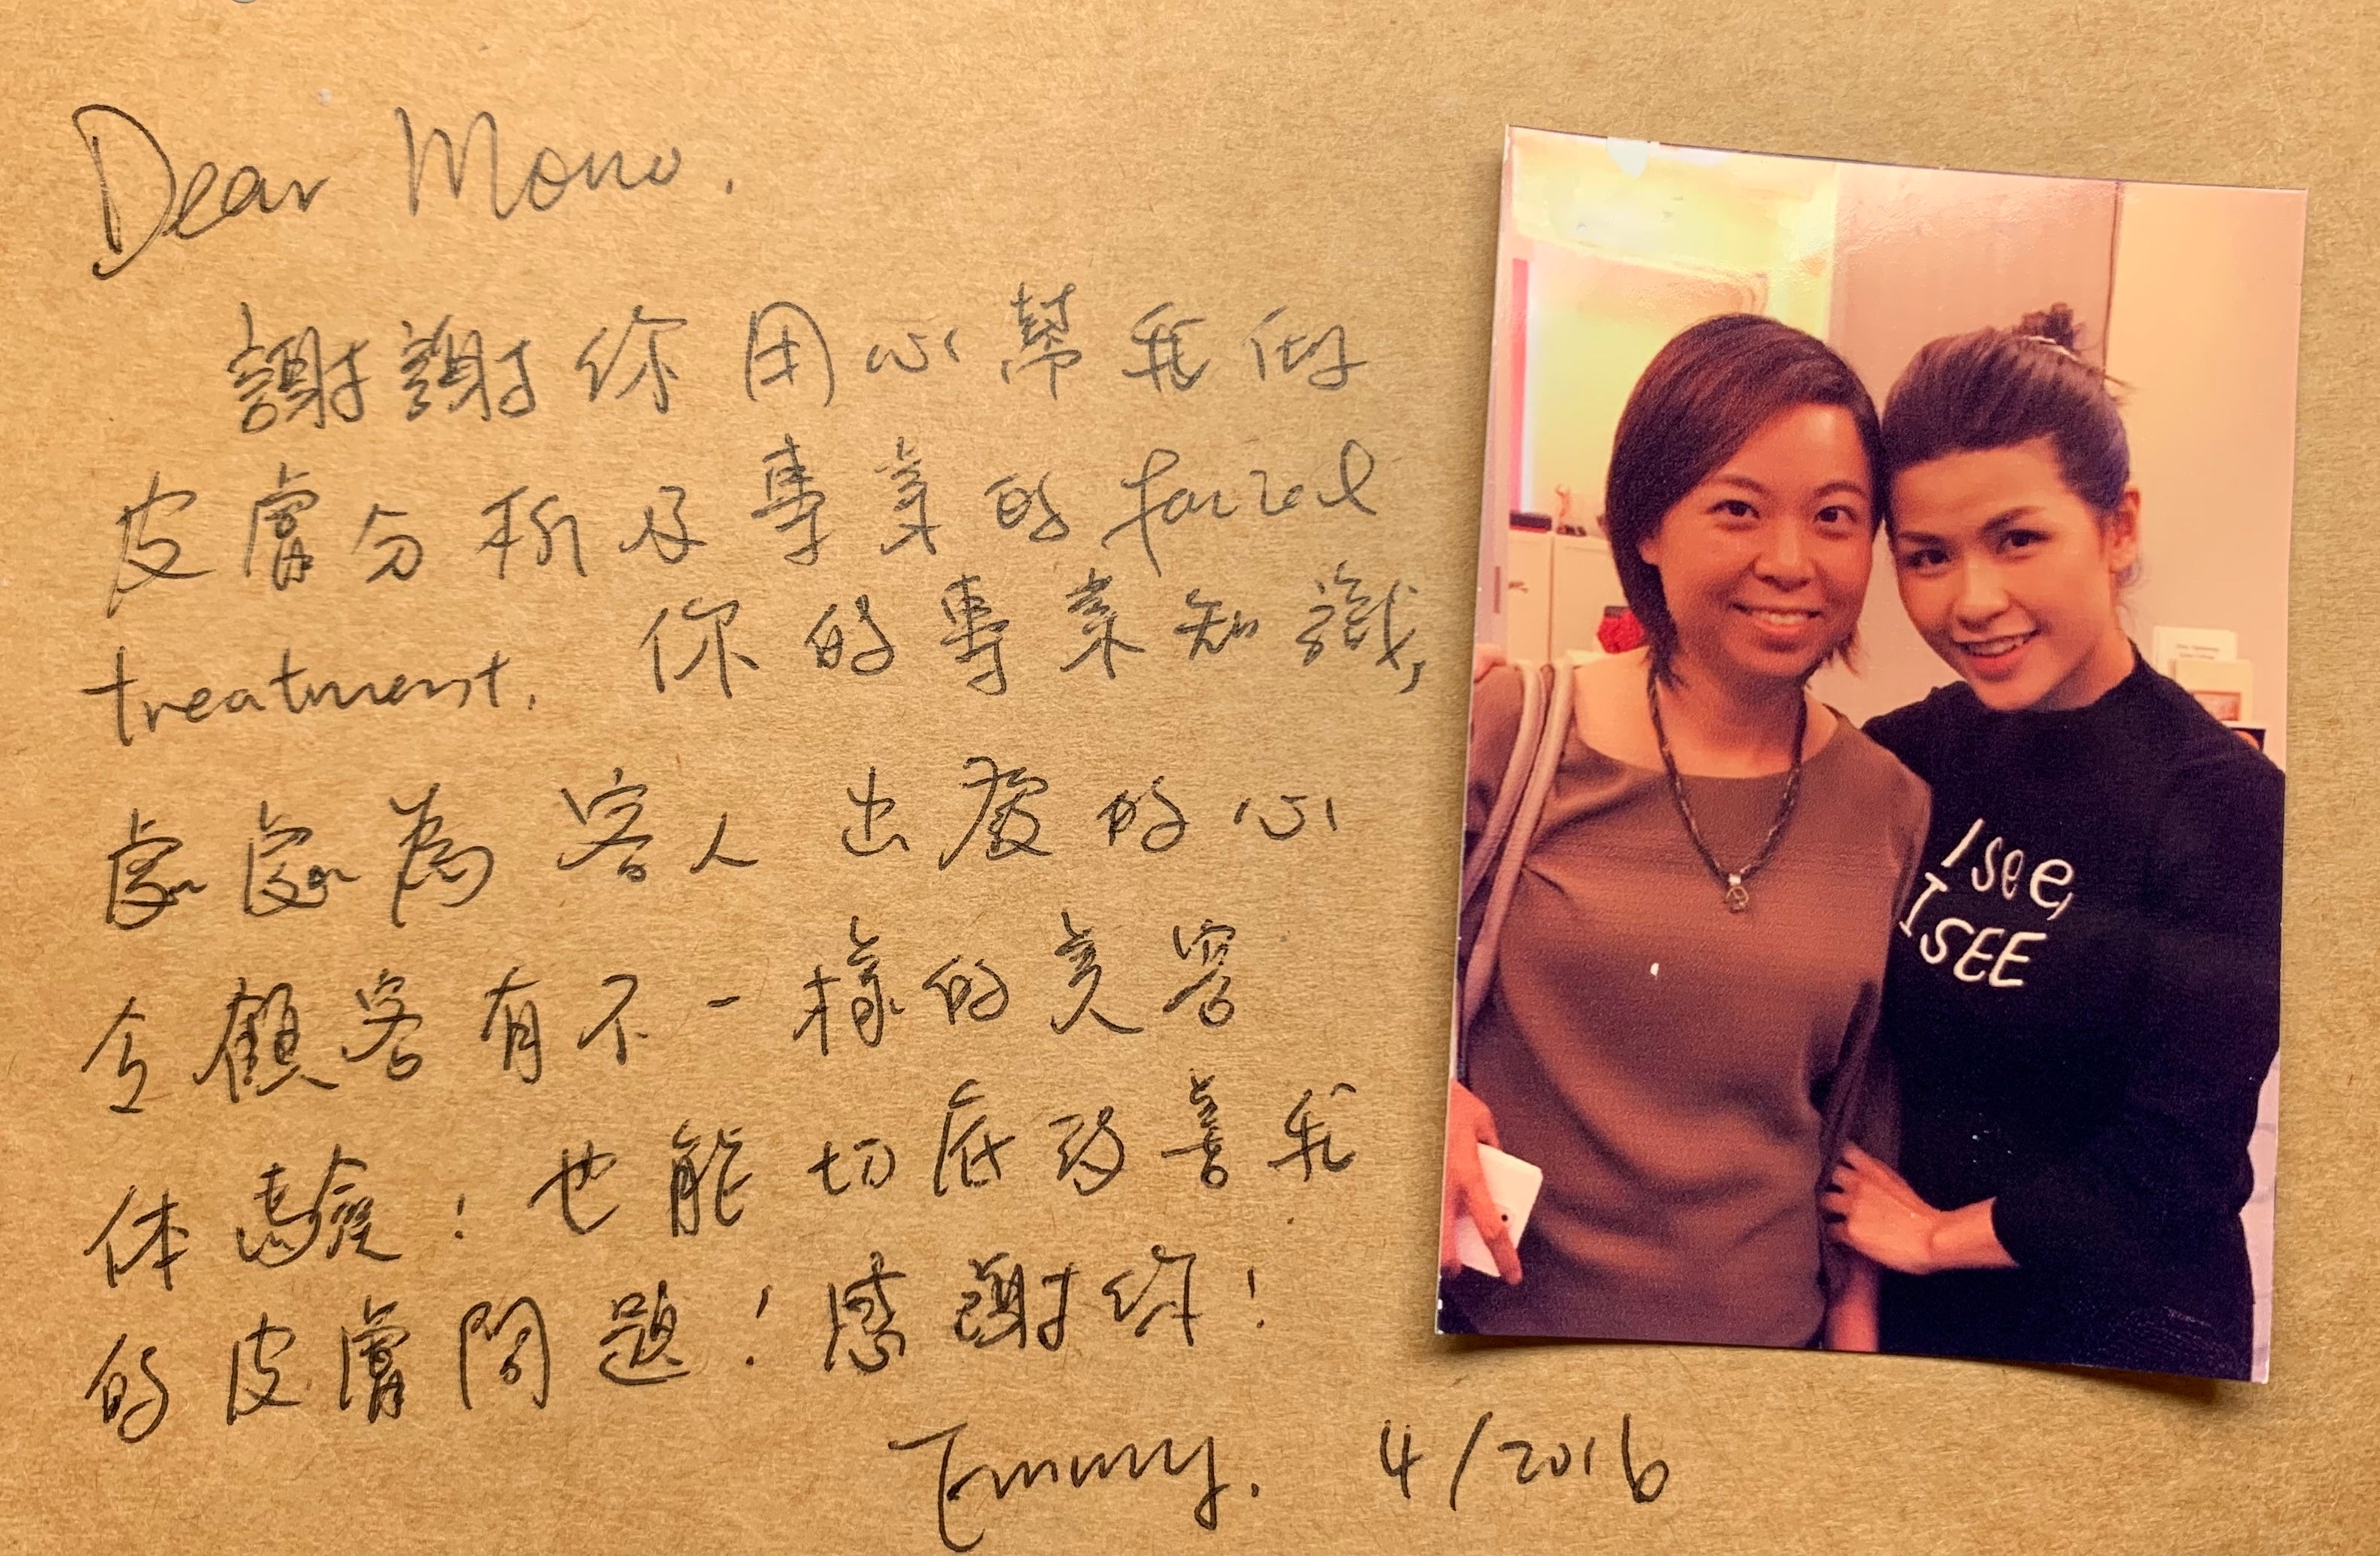 Dear Mono.
謝謝你用心幫我做
皮膚分析及專業的 facial
treatment. 你的專業知識,
處處為客人出發的心
令顧客有不一樣的美容
体驗! 也能切底改善我
的皮膚問題! 感謝你!
Emmy. 4/2016
I see,
I SEE